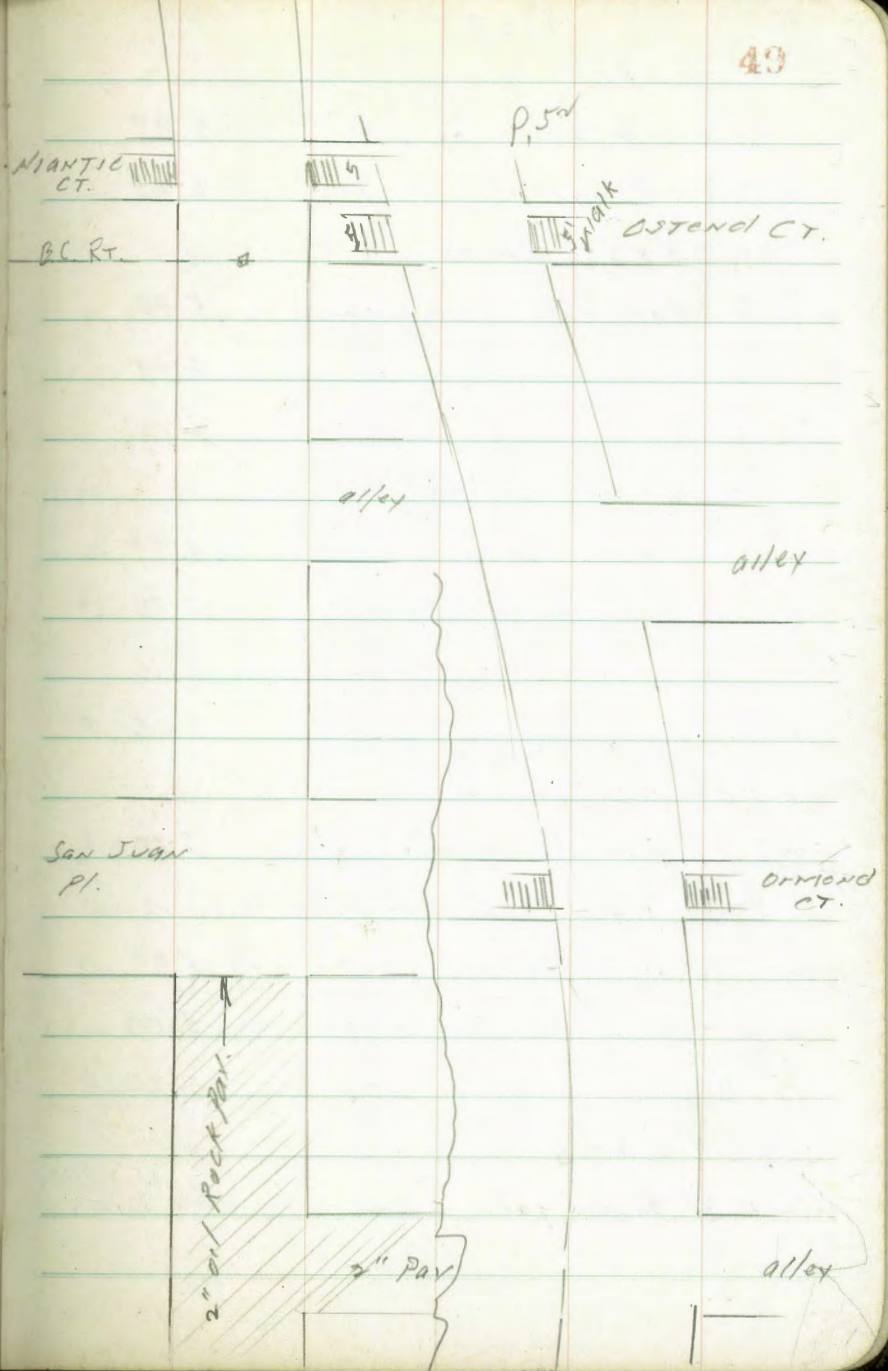 49
NIANTIC
CT.
5
5'
walk
OSTEND CT.
B.C. RT.
alley
alley
San Juan
Pl.
ORMOND
CT.
2" oil Rock Pav.
2" Pav
alley